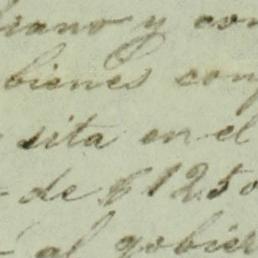 y con
bienes con
sita en el
de $1250
al gobier